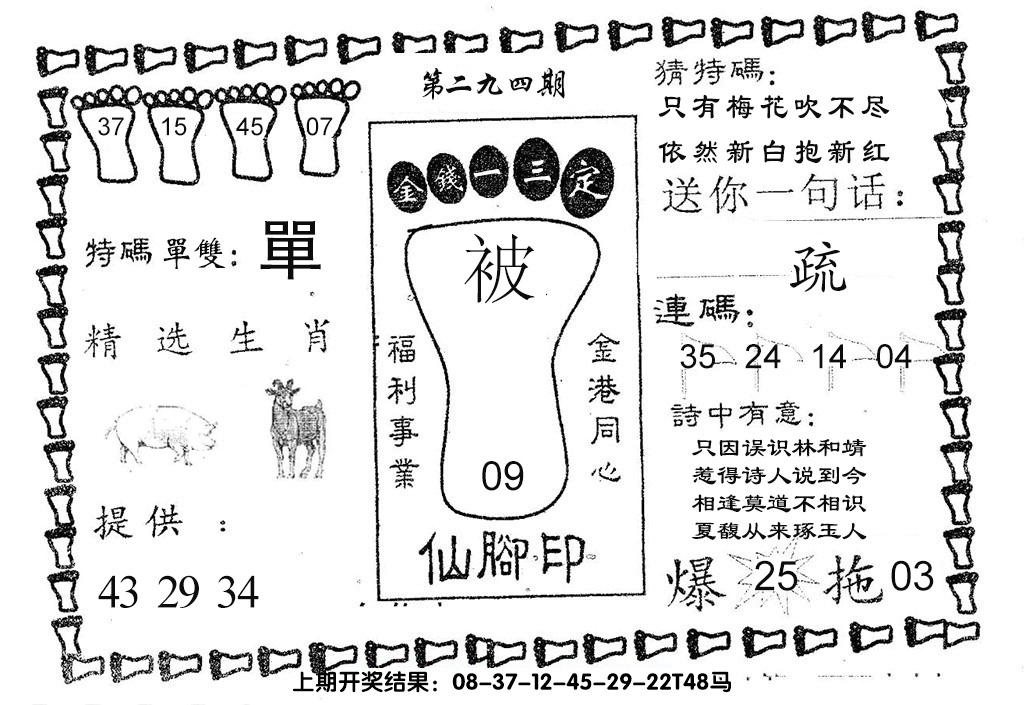 第二九四期
37 15 45 07
特碼單雙: 單
精选生肖
提供:
43 29 34
金錢一三定
被
福利事業
金港同心
09
仙腳印
猜特碼:
只有梅花吹不尽
依然新白抱新红
送你一句话:
疏
連碼:
35 24 14 04
詩中有意:
只因误识林和靖
惹得诗人说到今
相逢莫道不相识
夏馥从来琢玉人
爆 25 拖 03
上期开奖结果: 08-37-12-45-29-22T48马